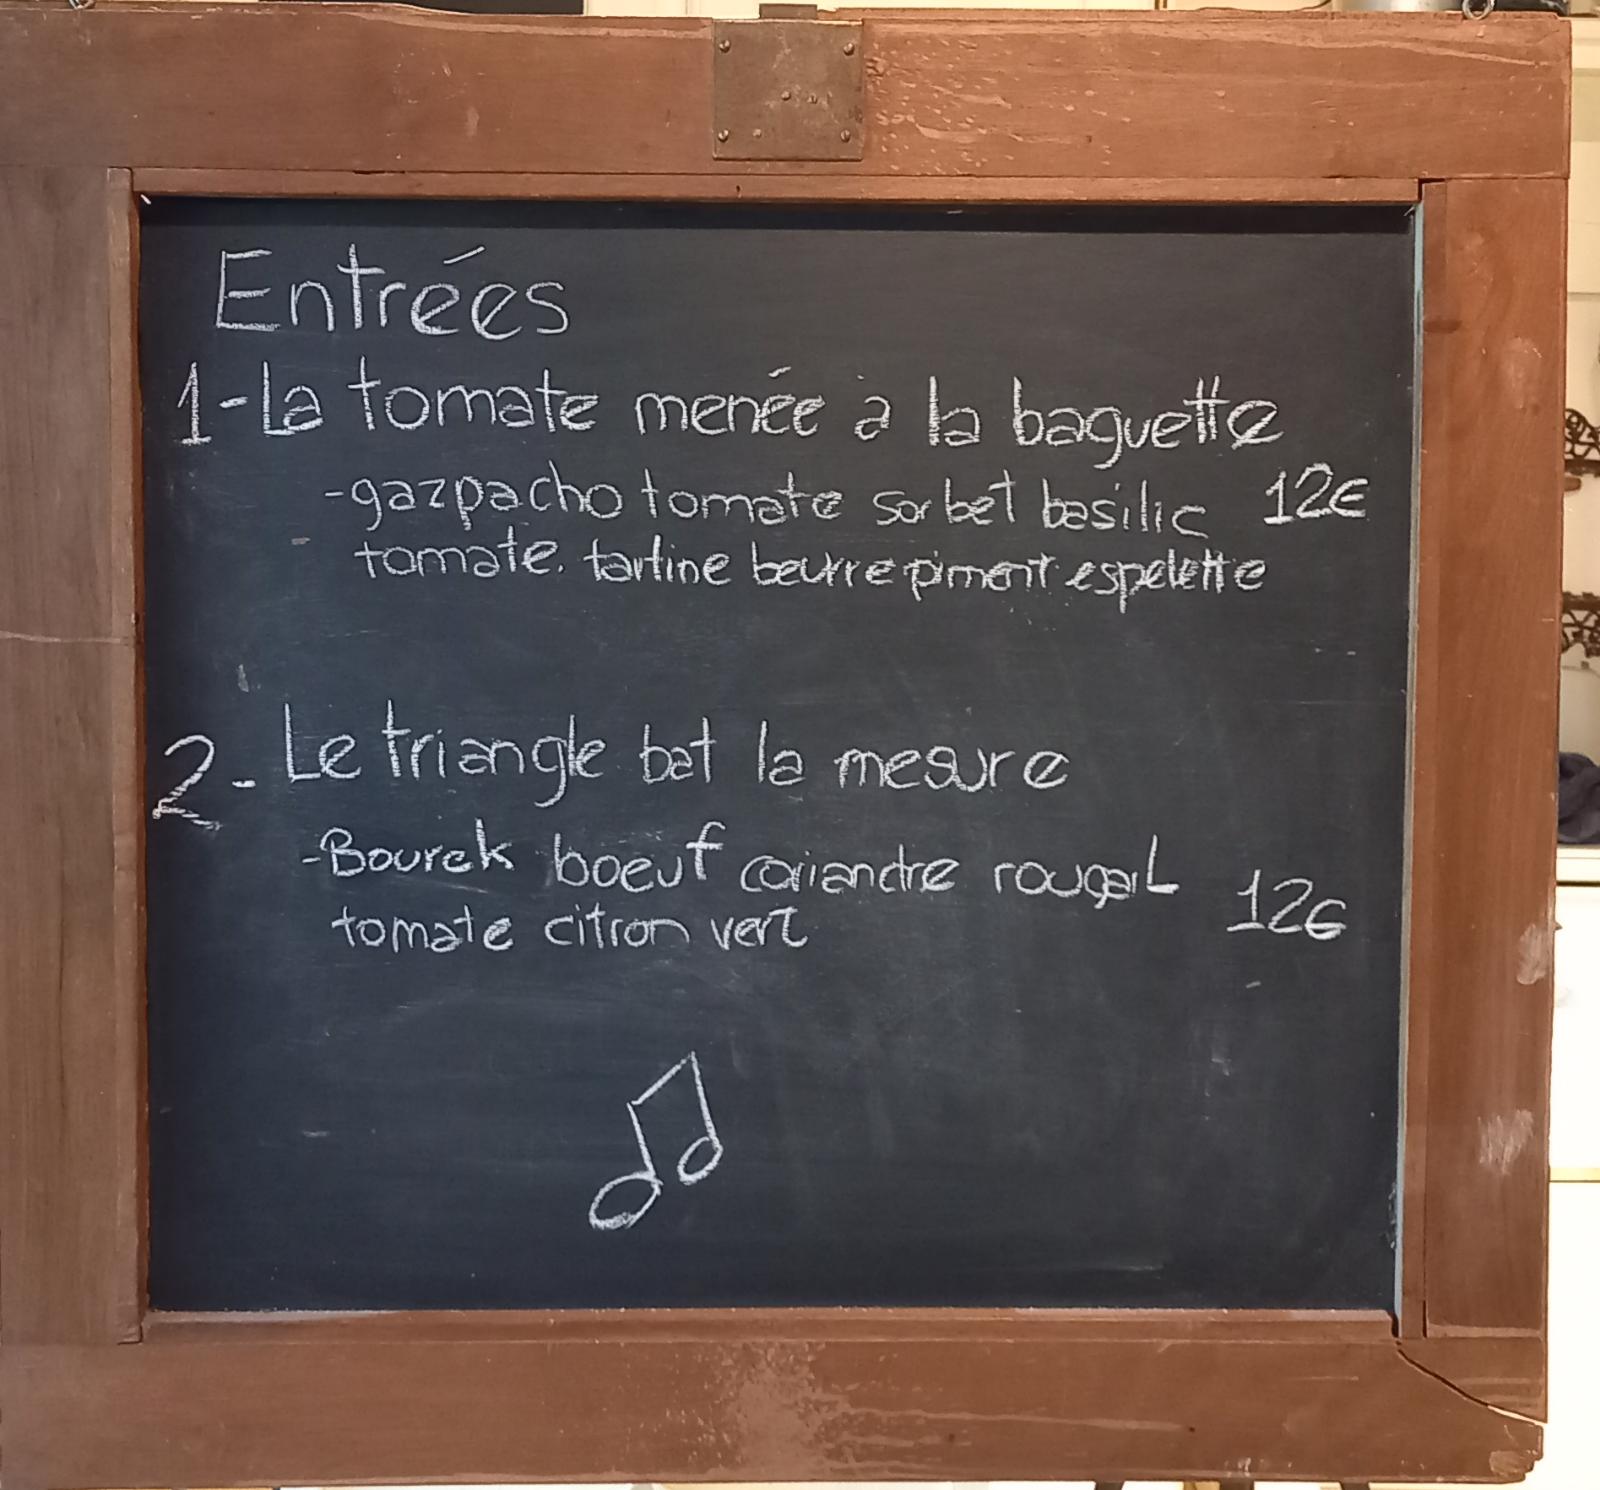 Entrées
1-La tomate menée à la baguette
-gazpacho tomate sorbet basilic 12€
tomate. tartine beurre piment espelette
2- Le triangle bat la mesure
-Bourek boeuf coriandre rougail
tomate citron vert 12€